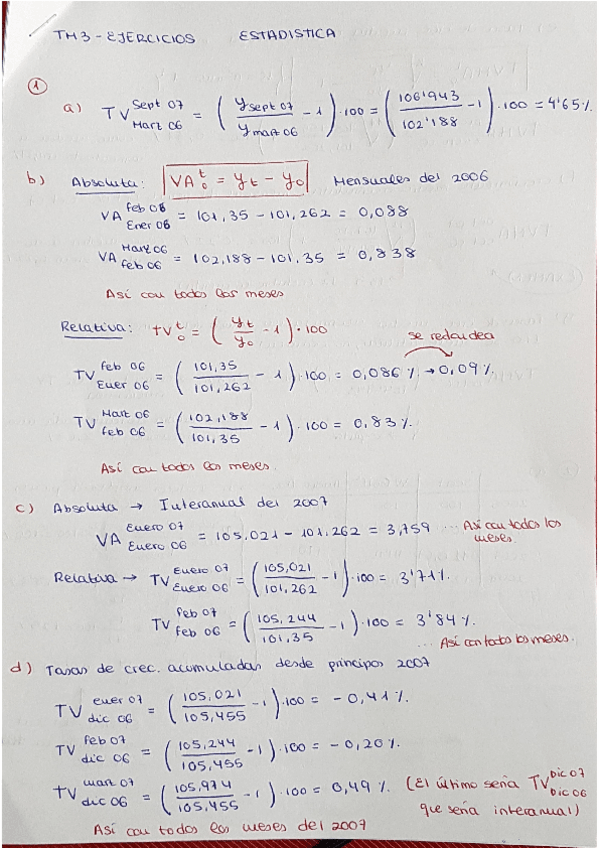 TM3 - EJERCICIOS ESTADISTICA
1
a) TV Sept 07 Marz 06 = ( y sept 07 / y mar 06 - 1 ) · 100 = ( 106'943 / 102'188 - 1 ) · 100 = 4'65 %
b) Absoluta: VA t o = yt - yo Mensuales del 2006
VA feb 06 Ener 06 = 101,35 - 101,262 = 0,088
VA Marz 06 feb 06 = 102,188 - 101,35 = 0,838
Así con todos los meses
Relativa: TV t o = ( yt / yo - 1 ) · 100
se redondea
TV feb 06 Ener 06 = ( 101,35 / 101,262 - 1 ) · 100 = 0,086 % → 0,09 %
TV Marz 06 feb 06 = ( 102,188 / 101,35 - 1 ) · 100 = 0,83 %
Así con todos los meses
c) Absoluta → Interanual del 2007
VA Enero 07 Enero 06 = 105,021 - 101,262 = 3,759 ... Así con todos los
meses.
Relativa → TV Enero 07 Enero 06 = ( 105,021 / 101,262 - 1 ) · 100 = 3'71 %
TV feb 07 feb 06 = ( 105,244 / 101,35 - 1 ) · 100 = 3'84 %
... Así con todos los meses.
d) Tasas de crec. acumuladas desde principos 2007
TV ener 07 dic 06 = ( 105,021 / 105,455 - 1 ) · 100 = - 0,41 %
TV feb 07 dic 06 = ( 105,244 / 105,455 - 1 ) · 100 = - 0,20 %
TV marz 07 dic 06 = ( 105,974 / 105,455 - 1 ) · 100 = 0,49 % (El último sería TV Dic 07 Dic 06
que sería interanual)
Así con todos los meses del 2007